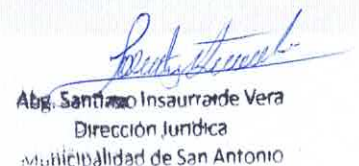 Abg. Santiago Insaurralde Vera
Dirección Jurídica
Municipalidad de San Antonio